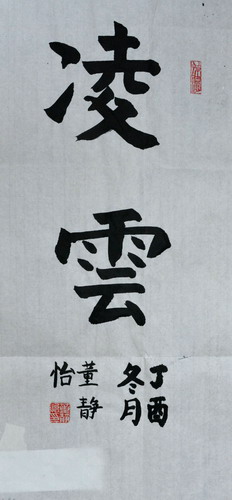 凌雲
丁酉
冬月
董静
怡